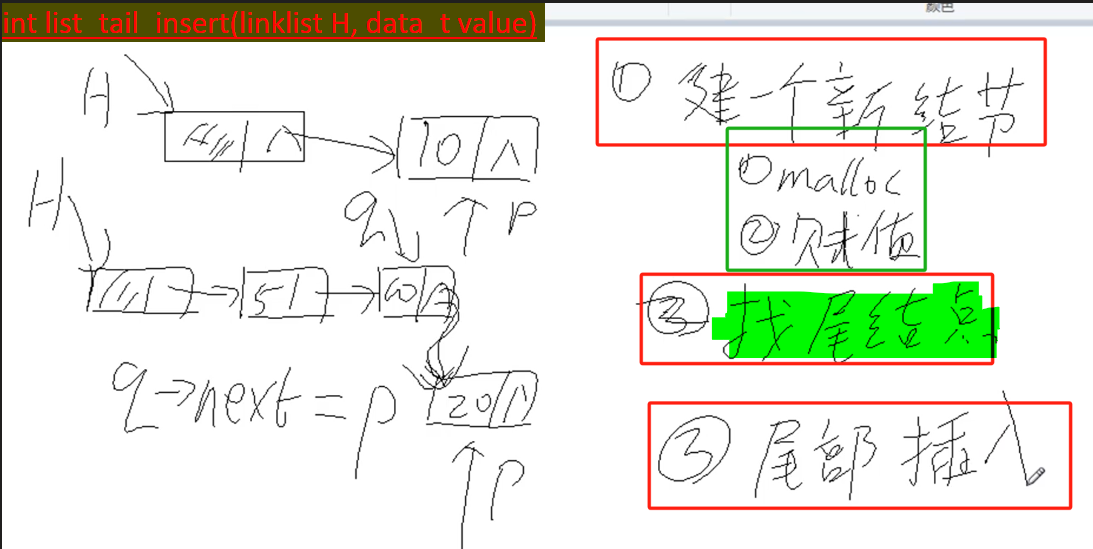 int list_tail_insert(linklist H, data_t value)
颜色
H
∧ 10 ∧
q P
H
5 ∧
q->next = p
20 ∧
P
① 建一个新结节
① malloc
② 赋值
② 找尾结点
③ 尾部插入